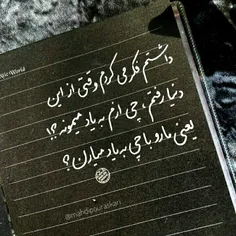 World
داشتم فکر می کردم وقتی از این
دنیا رفتم، چی ازم به یاد میمونه؟!
یعنی مارو با چی به یاد میارن؟
@mahdipouraskari